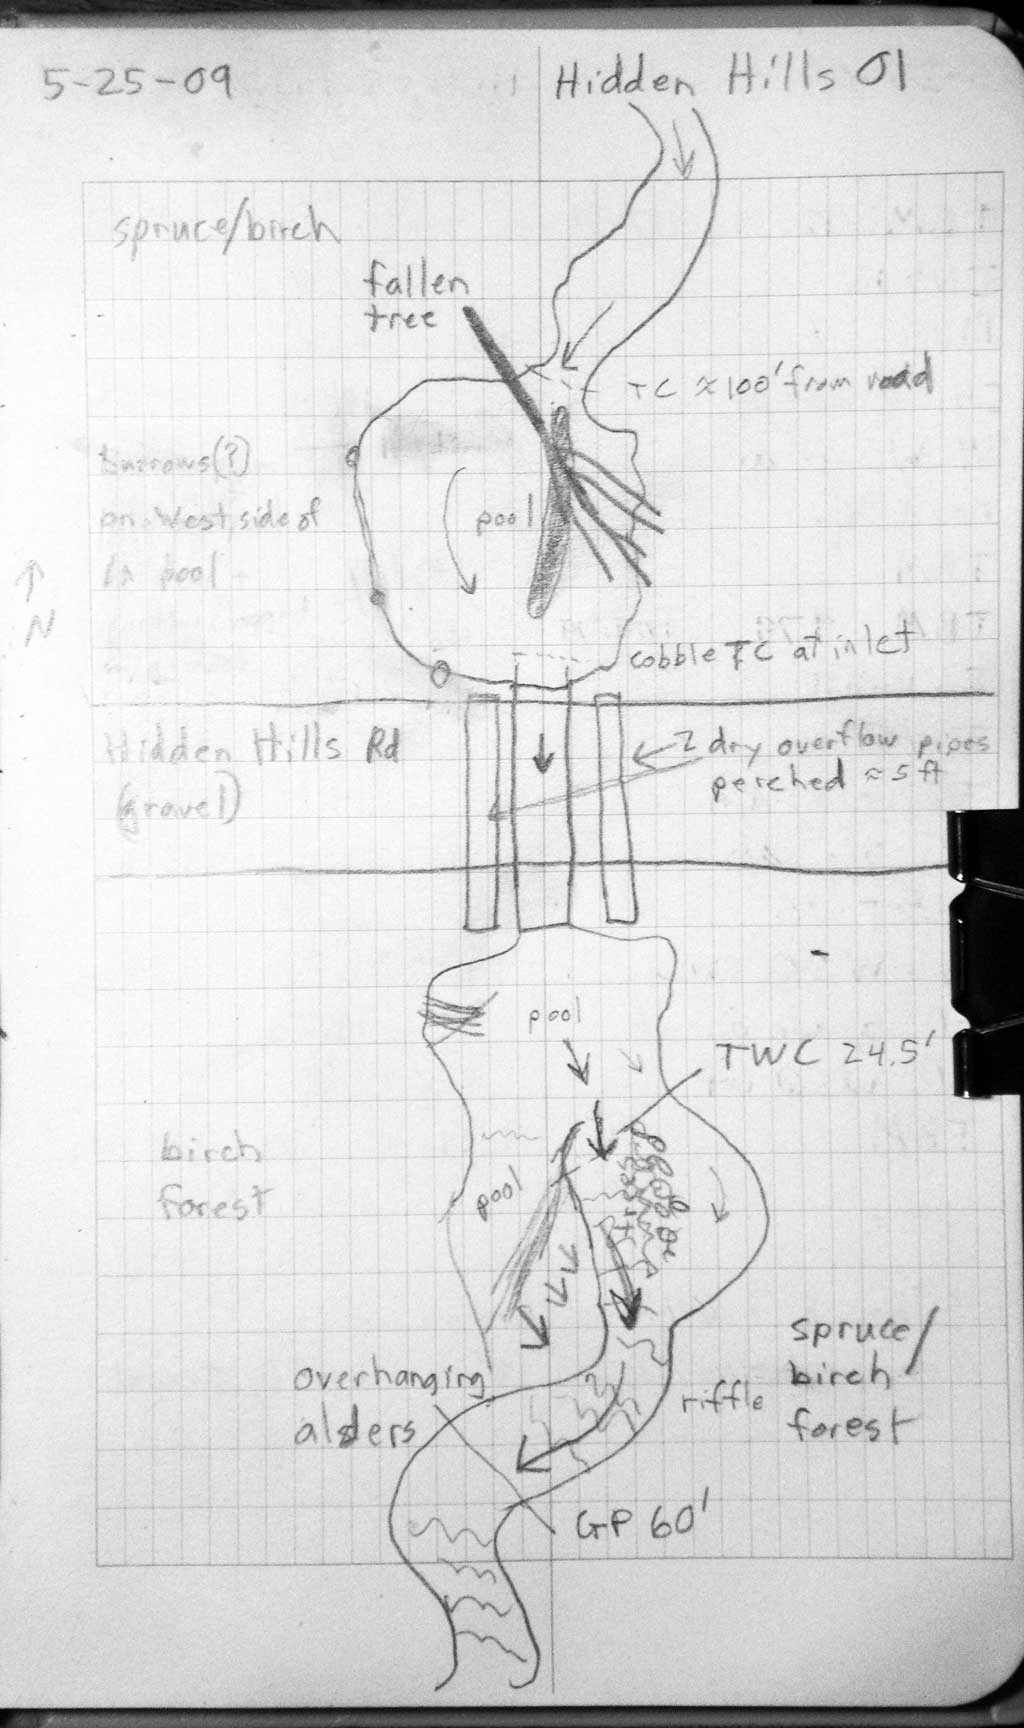 5-25-09
Hidden Hills 01
spruce/birch
fallen
tree
TC ≈100' from road
burrows(?)
on West side of
pool
pool
N
cobble TC at inlet
Hidden Hills Rd
(gravel)
2 dry overflow pipes
perched ≈5 ft
pool
TWC 24.5'
birch
forest
pool
trees
overhanging
alders
riffle
spruce/
birch
forest
GP 60'